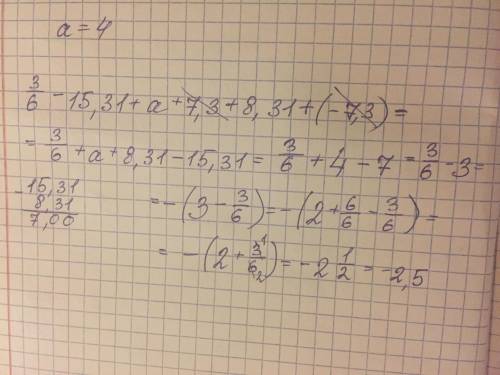 a = 4
3/6 - 15,31 + a + 7,3 + 8,31 + (-7,3) =
= 3/6 + a + 8,31 - 15,31 = 3/6 + 4 - 7 = 3/6 - 3 =
- 15,31
8,31
7,00
= -(3 - 3/6) = -(2 + 6/6 - 3/6) =
= -(2 + 3¹/6₂) = -2 1/2 = -2,5